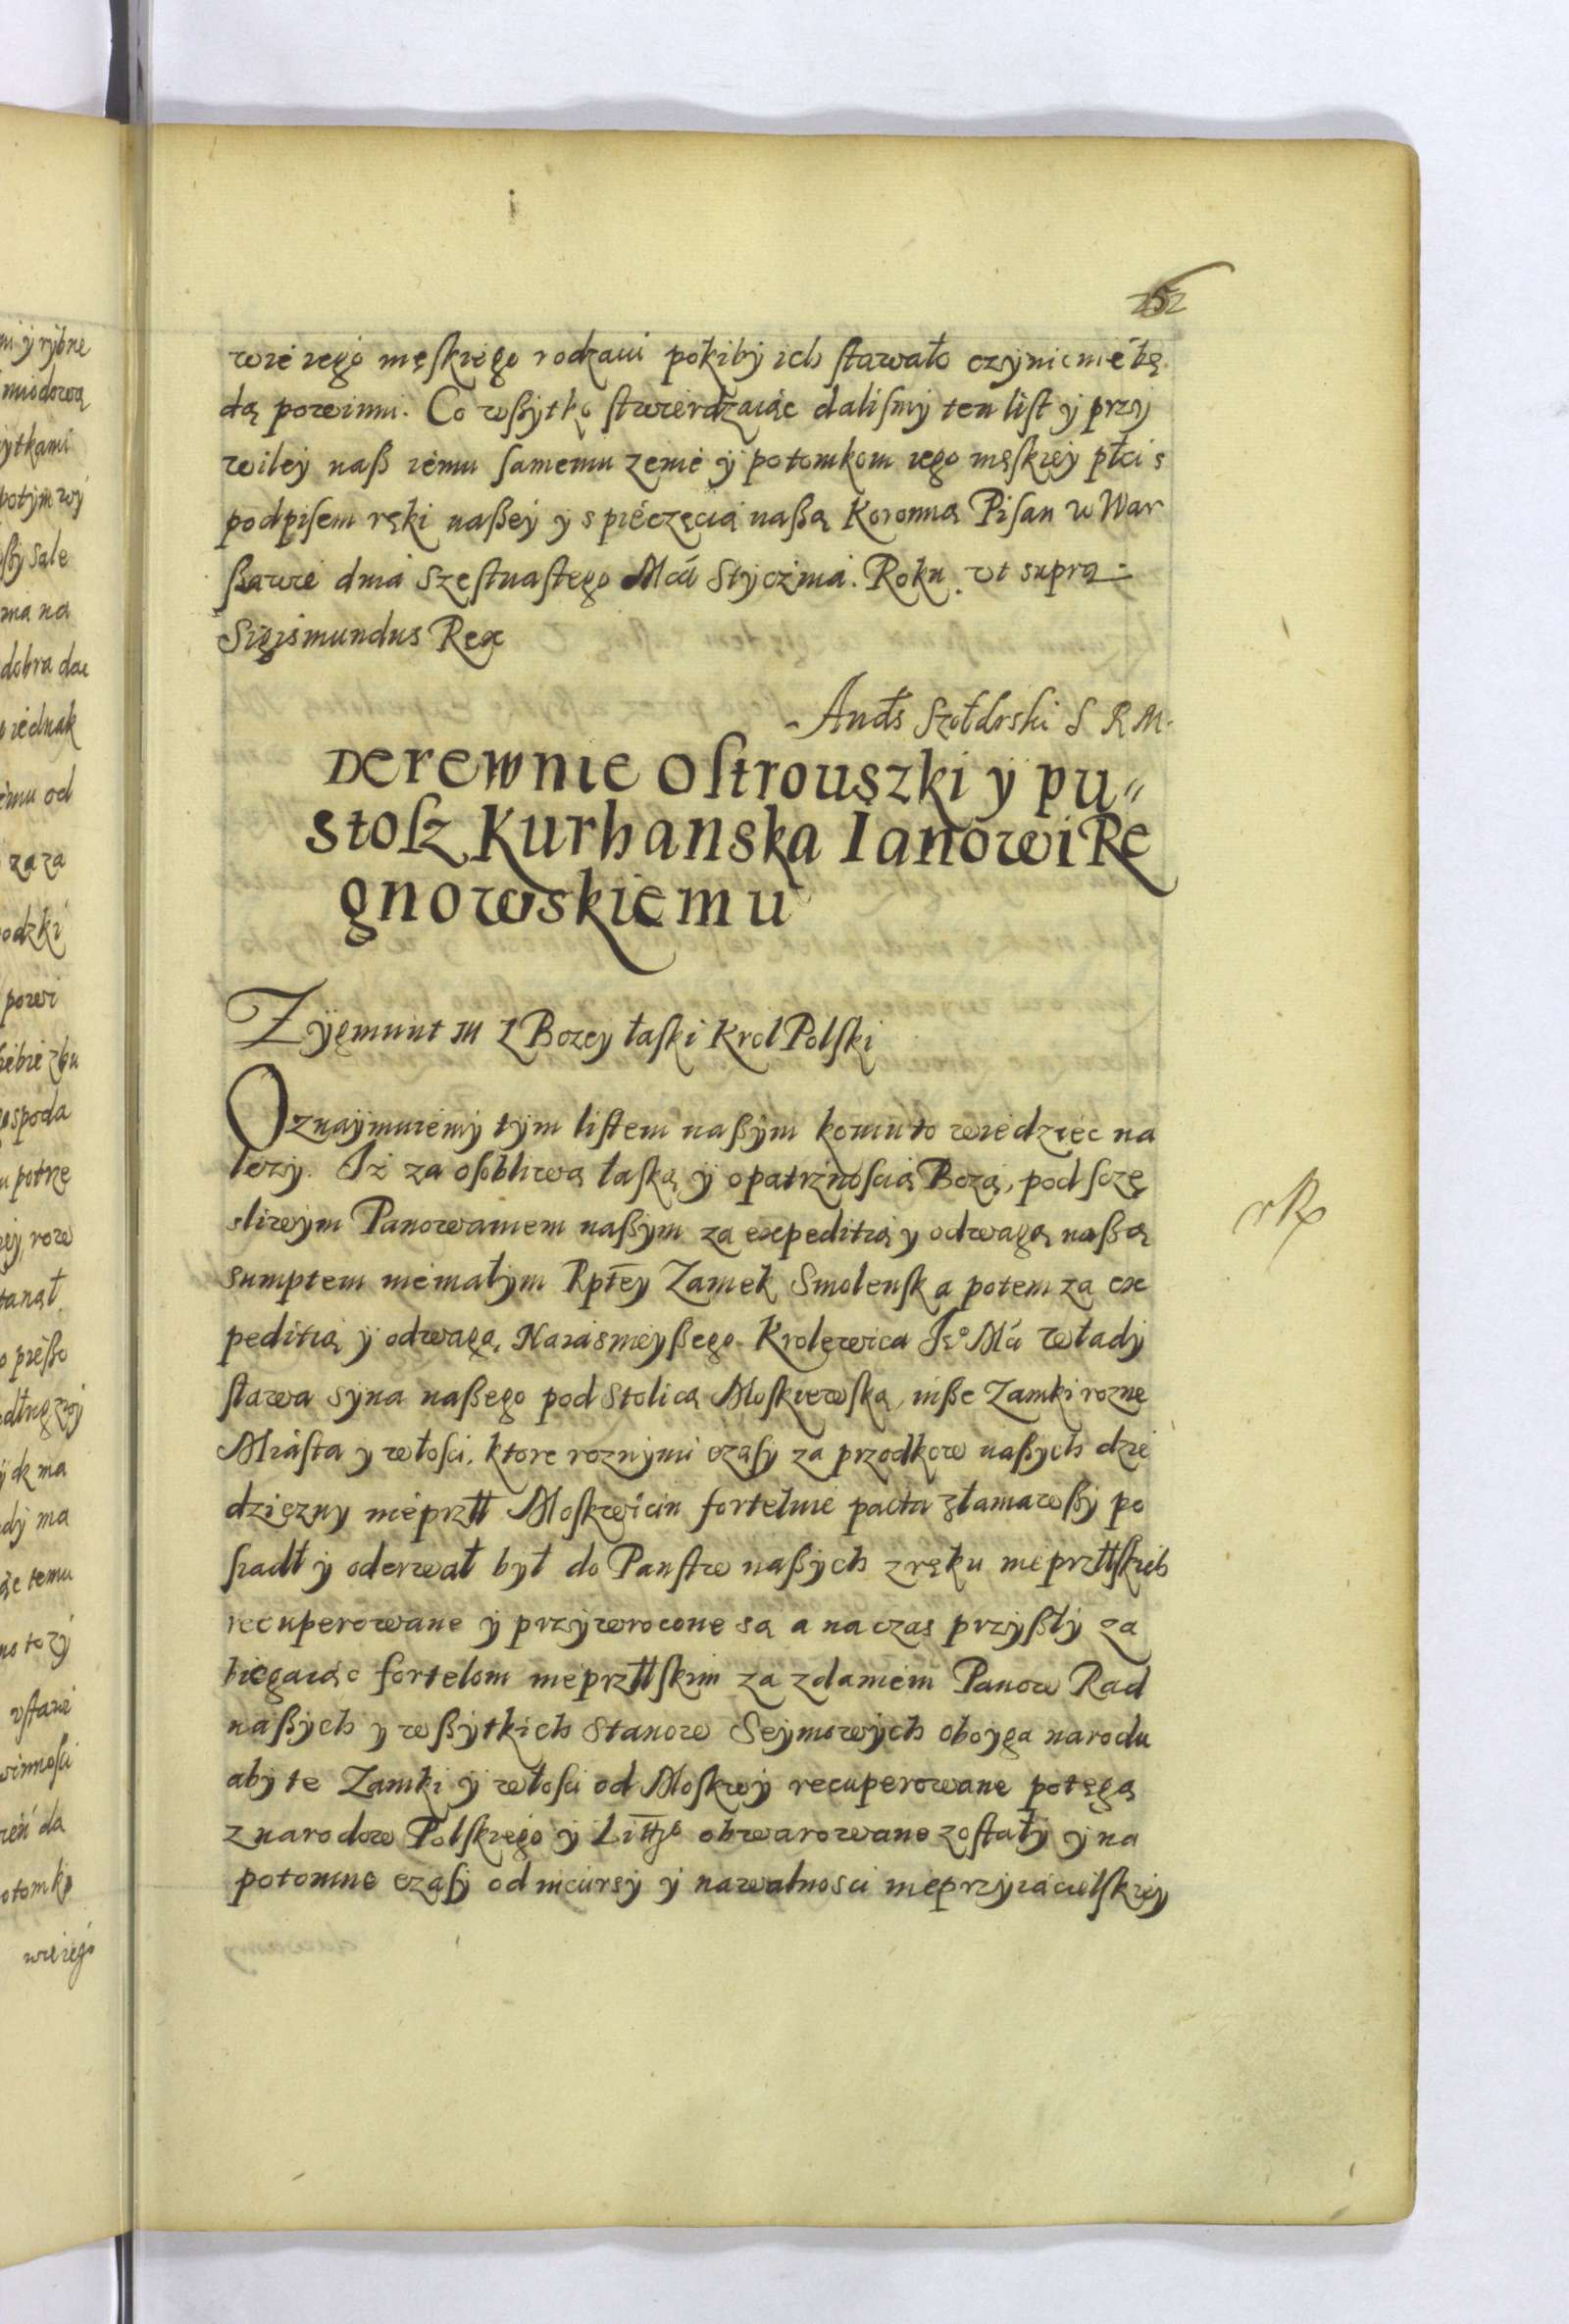 152
wie iego męskiego rodzaiu pokiby ich stawało czynic nie bę
dą powinni. Co wßytko stwierdzaiąc dalismy ten list y przy
wiley naß iemu samemu żenie y potomkom iego męskiey płci s
podpisem ręki naßey y s pieczęcią naßą Koronną Pisan w War
ßawie dnia Szestnastego Mca Stycznia. Roku. vt supra
Sigismundus Rex
Ands Szołdrski S R M
Derewnie Ostrouszki y pu"
stosz Kurhanska Ianowi Re
gnowskiemu
Zygmunt III Z Bozey łaski Krol Polski
Oznaymuiemy tym listem naßym komu to wiedziec na
lezy. Iż za osobliwą łaską y opatrznoscią Bozą, pod szczę
sliwym Panowaniem naßym za expeditią y odwagą naßą
sumptem niemałym Rptey Zamek Smolensk a potem za ex
peditią y odwagą, Naiasnieyßego Krolewica Jeo Mci Włady
sława syna naßego pod Stolicą Moskiewską, inße Zamki rozne
Miasta y włosci, ktore roznymi czasy za przodkow naßych dzie
dziczny nieprztl Moskwicin fortelnie pacta złamawßy po
siadł y oderwał był do Panstw naßych z ręku nieprztlskich
recuperowane y przywrocone są a na czas przyßły za
biegaiąc fortelom nieprztlskim za zdaniem Panow Rad
naßych y wßytkich Stanow Seymowych oboyga narodu
aby te Zamki y włosci od Moskwy recuperowane potęgą
z narodow Polskiego y Littgo obwarowane zostały y na
potomne czasy od incursy y nawalnosci nieprzyiacielskiey